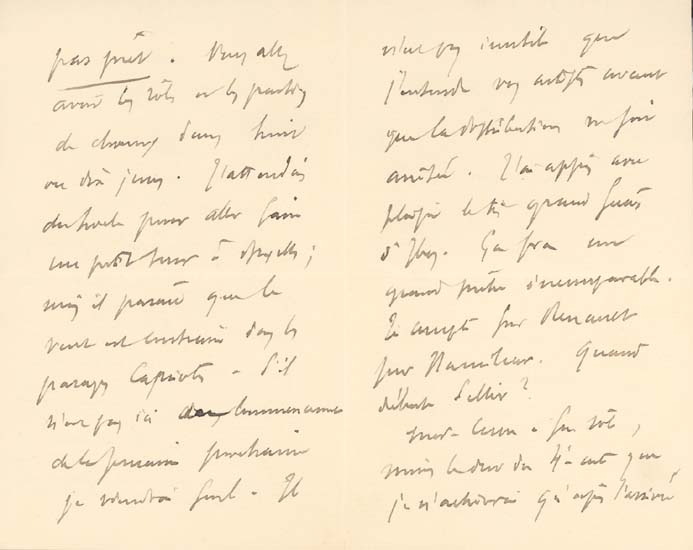 pas prêt. Vous allez
avoir les rôles et les parties
de chœurs dans huit
ou dix jours. J'attendais
du Locle pour aller faire
une petit tour à Bruxelles ;
mais il paraît que le
vent est contraire dans les
parages Capriotes - S'il
n'est pas ici au commencement
de la semaine prochaine
je viendrai seul - Il
n'est pas inutile que
j'entende vos artistes avant
que la distribution ne soit
arrêtée. J'ai appris avec
plaisir le très grand succès
d'
grand prêtre incomparable.
Je compte sur Renaud
pour Hamilcar. Quand
débute Sellier ?
son rôle,
mais le duo du 4e acte que
je n'achèverai qu'après l'arrivée